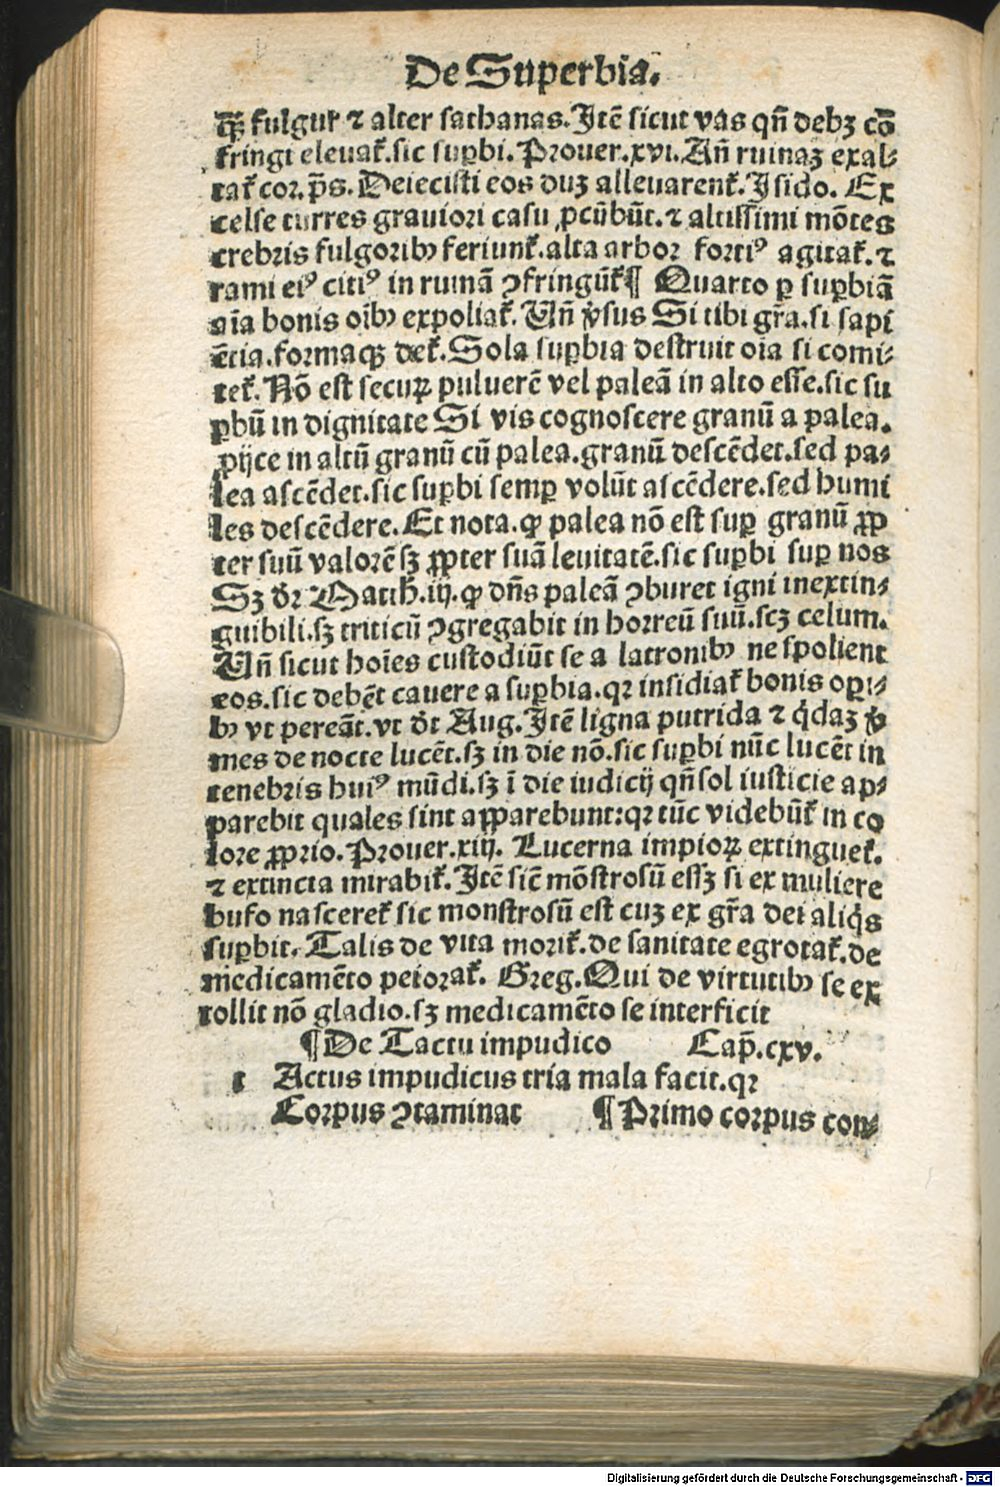 De Superbia.
qͣꝫ fulgur̃ ⁊ alter sathanas. Jtẽ sicut vas qñ debꝫ cõ
fringi eleuat̃. sic suꝑbi. Prouer. xvi. Añ ruinaꝫ exal-
tat̃ cor. p̃s. Deiecisti eos duꝫ alleuarent̃. Jsido. Ex
celse turres grauiori casu ꝓcũbũt. ⁊ altissimi mõtes
crebris fulgoribꝰ feriunt̃. alta arbor fortiꝰ agitat̃. ⁊
rami eiꝰ citiꝰ in ruinã ꝯfringũt̃ ¶ Quarto ꝑ suꝑbiã
aĩa bonis oĩbꝰ expoliat̃. Uñ v̉sus Si tibi gr̃a. si sapi
ẽtia. formaqꝫ det̃. Sola suꝑbia destruit oĩa si comi-
tet̃. Nõ est securꝝ puluerẽ vel paleã in alto esse. sic su
ꝑbũ in dignitate Si vis cognoscere granũ a palea.
ꝓijce in altũ granũ cũ palea. granũ descẽdet. sed pa-
lea ascẽdet. sic suꝑbi semꝑ volũt ascẽdere. sed humi
les descẽdere. Et nota. ꝙ palea nõ est suꝑ granũ ꝓp
ter suũ valorẽ sꝫ ꝓpter suã leuitatẽ. sic suꝑbi suꝑ nos
Sꝫ dr̃ Matth̃. iij. ꝙ dñs paleã ꝯburet igni inextin-
guibili. sꝫ triticũ ꝯgregabit in horreũ suũ. scꝫ celum.
Uñ sicut hoĩes custodiũt se a latronibꝰ ne spolient
eos. sic debẽt cauere a suꝑbia. qꝛ insidiat̃ bonis oꝑi-
bꝰ vt pereãt. vt dt̃ Aug. Jtẽ ligna putrida ⁊ q̉daꝫ v̉
mes de nocte lucẽt. sꝫ in die nõ. sic suꝑbi nũc lucẽt in
tenebris huiꝰ mũdi. sꝫ ĩ die iudicij qñ sol iusticie ap-
parebit quales sint apparebunt: qꝛ tũc videbũt̃ in co
lore ꝓprio. Prouer. xiij. Lucerna impiorꝝ extinguet̃.
⁊ extincta mirabit̃. Jtẽ sic̃ mõstrosũ essꝫ si ex muliere
bufo nasceret̃ sic monstrosũ est cuꝫ ex gr̃a dei aliq̉s
suꝑbit. Talis de vita morit̃. de sanitate egrotat̃. de
medicamẽto peiorat̃. Greg. Qui de virtutibꝰ se ex
tollit nõ gladio. sꝫ medicamẽto se interficit
¶ De Tactu impudico Cap̃. cxv.
t Actus impudicus tria mala facit. qꝛ
Corpus ꝯtaminat ¶ Primo corpus con-
Digitalisierung gefördert durch die Deutsche Forschungsgemeinschaft - DFG